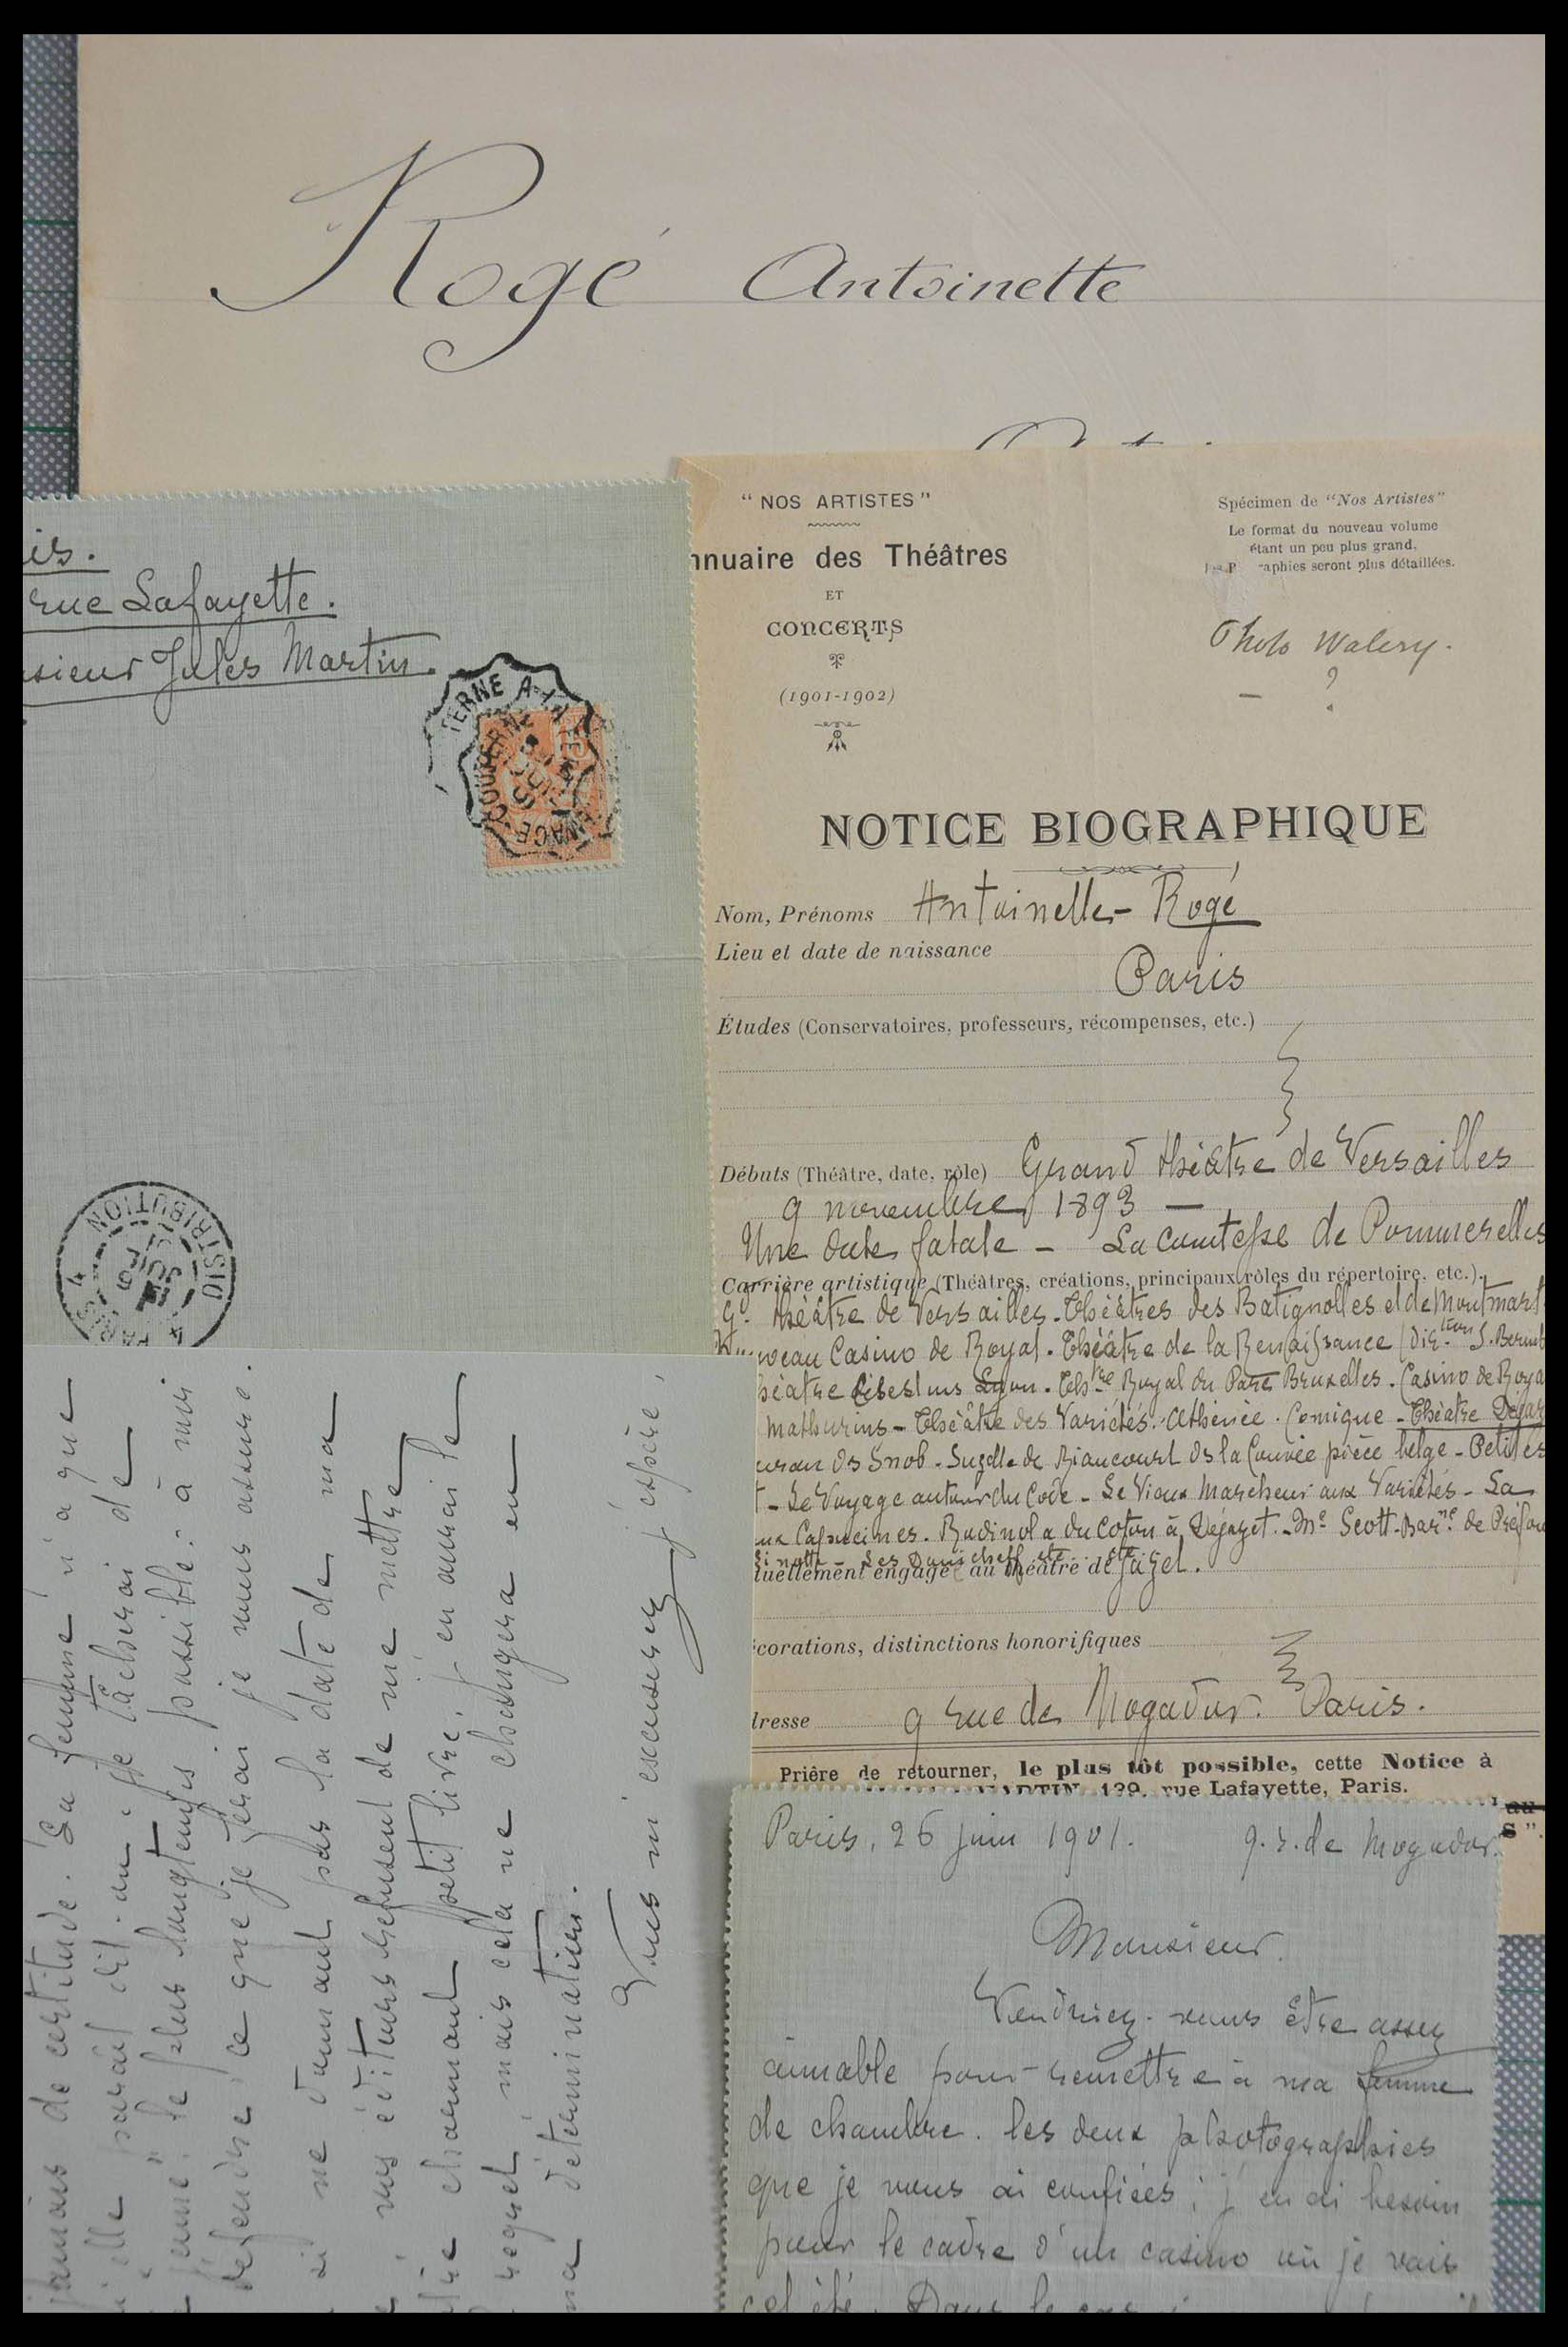 Rogé Antoinette
rue Lafayette.
Jules Martin.
TERNE A
15
DISTRIBUTION
PARIS
4
"NOS ARTISTES"
nnuaire des Théâtres
ET
CONCERTS
(1901-1902)
Spécimen de "Nos Artistes"
Le format du nouveau volume
étant un peu plus grand,
raphies seront plus détaillées.
Photo Walery.
— ?
NOTICE BIOGRAPHIQUE
Nom, Prénoms Antoinette - Rogé
Lieu et date de naissance
Paris
Études (Conservatoires, professeurs, récompenses, etc.)
Débuts (Théâtre, date, rôle) Grand théâtre de Versailles
9 novembre 1893 —
Une date fatale - La comtesse de Pommerelles
Carrière artistique (Théâtres, créations, principaux rôles du répertoire, etc.).
Gd théâtre de Versailles - Théâtres des Batignolles et de Montmart
Nouveau Casino de Royat. Théâtre de la Renaissance (Dirction S.
Lyon. Royal du Parc Bruxelles. Casino de Roya
Mathurins - Théâtre des Variétés. Athénée. Comique - Théâtre Dejaz
Snob - Suzette de Biancourt de la Couvée pièce belge - Petites
- Le Voyage autour du Code - Le Vieux Marcheur aux Variétés - La
ux Capucines. du à Dejazet. - Me Scott.
tuellement engagé au théâtre de jazet.
corations, distinctions honorifiques
dresse 9 rue de Mogador. Paris.
Prière de retourner, le plus tôt possible, cette Notice à
MARTIN, 139, rue Lafayette, Paris.
jamais de certitude. La femme n'a que
elle parait dit-on. Je tâcherai de
le plus longtemps possible. à moi
défendre, ce que je ferai je vous assure.
si ne donnant pas la date de ma
vos éditeurs refusent de me mettre
charmant petit livre, j'en aurai le
regret mais cela ne changera en
ma détermination.
Vous m'excuserez j'espère,
Paris, 26 juin 1901. 9. r. de Mogador.
Monsieur.
Voudriez-vous être assez
aimable pour remettre à ma femme
de chambre. les deux photographies
que je vous ai confiées; j'en ai besoin
pour le cadre d'un casino où je vais
cet été. Dans le cas